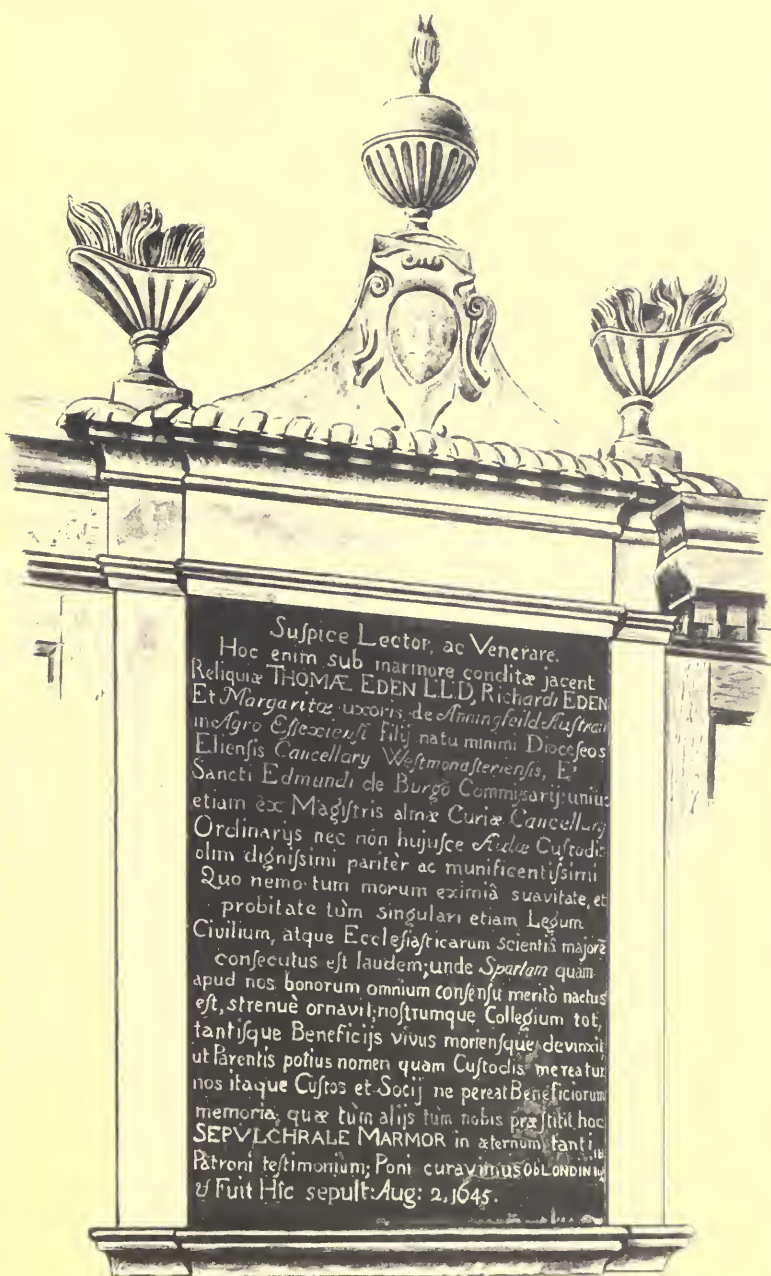 Suſpice Lector, ac Venerare.
Hoc enim sub marmore conditæ jacent
Reliquiæ THOMÆ EDEN LL.D, Richardi EDEN
Et Margaritæ uxoris de Anningfeild Auſtrali
in Agro Eſſexienſi Filij natu minimi Dioceſeos
Elienſis Cancellarij Weſtmonaſterienſis, E'
Sancti Edmundi de Burgo Commiſsarij: unius
etiam èx Magiſtris almæ Curiæ Cancellarij
Ordinarijs nec nón hujuſce Aulæ Cuſtodis
olim digniſsimi paritèr ac munificentiſsimi
Quo nemo tum morum eximiâ suavitate, et
probitate tùm singulari etiam Legum
Civilium, atque Eccleſiaſticarum scientiâ majorē
conſecutus eſt laudem; unde Spartam quam
apud nos bonorum omnium conſenſu meritò nactus
eſt, strenuè ornavit; noſtrumque Collegium tot,
tantiſque Beneficijs vivus morienſque devinxit
ut Parentis potius nomen quam Cuſtodis mereatur
nos itaque Cuſtos et Socij ne pereat Beneficiorum
memoria, quæ tùm alijs tùm nobis præſtitit, hoc
SEPVLCHRALE MARMOR in æternum tanti
Patroni teſtimonium; Poni curavimus Ob LONDINI
Fuit Hîc sepult: Aug: 2, 1645.